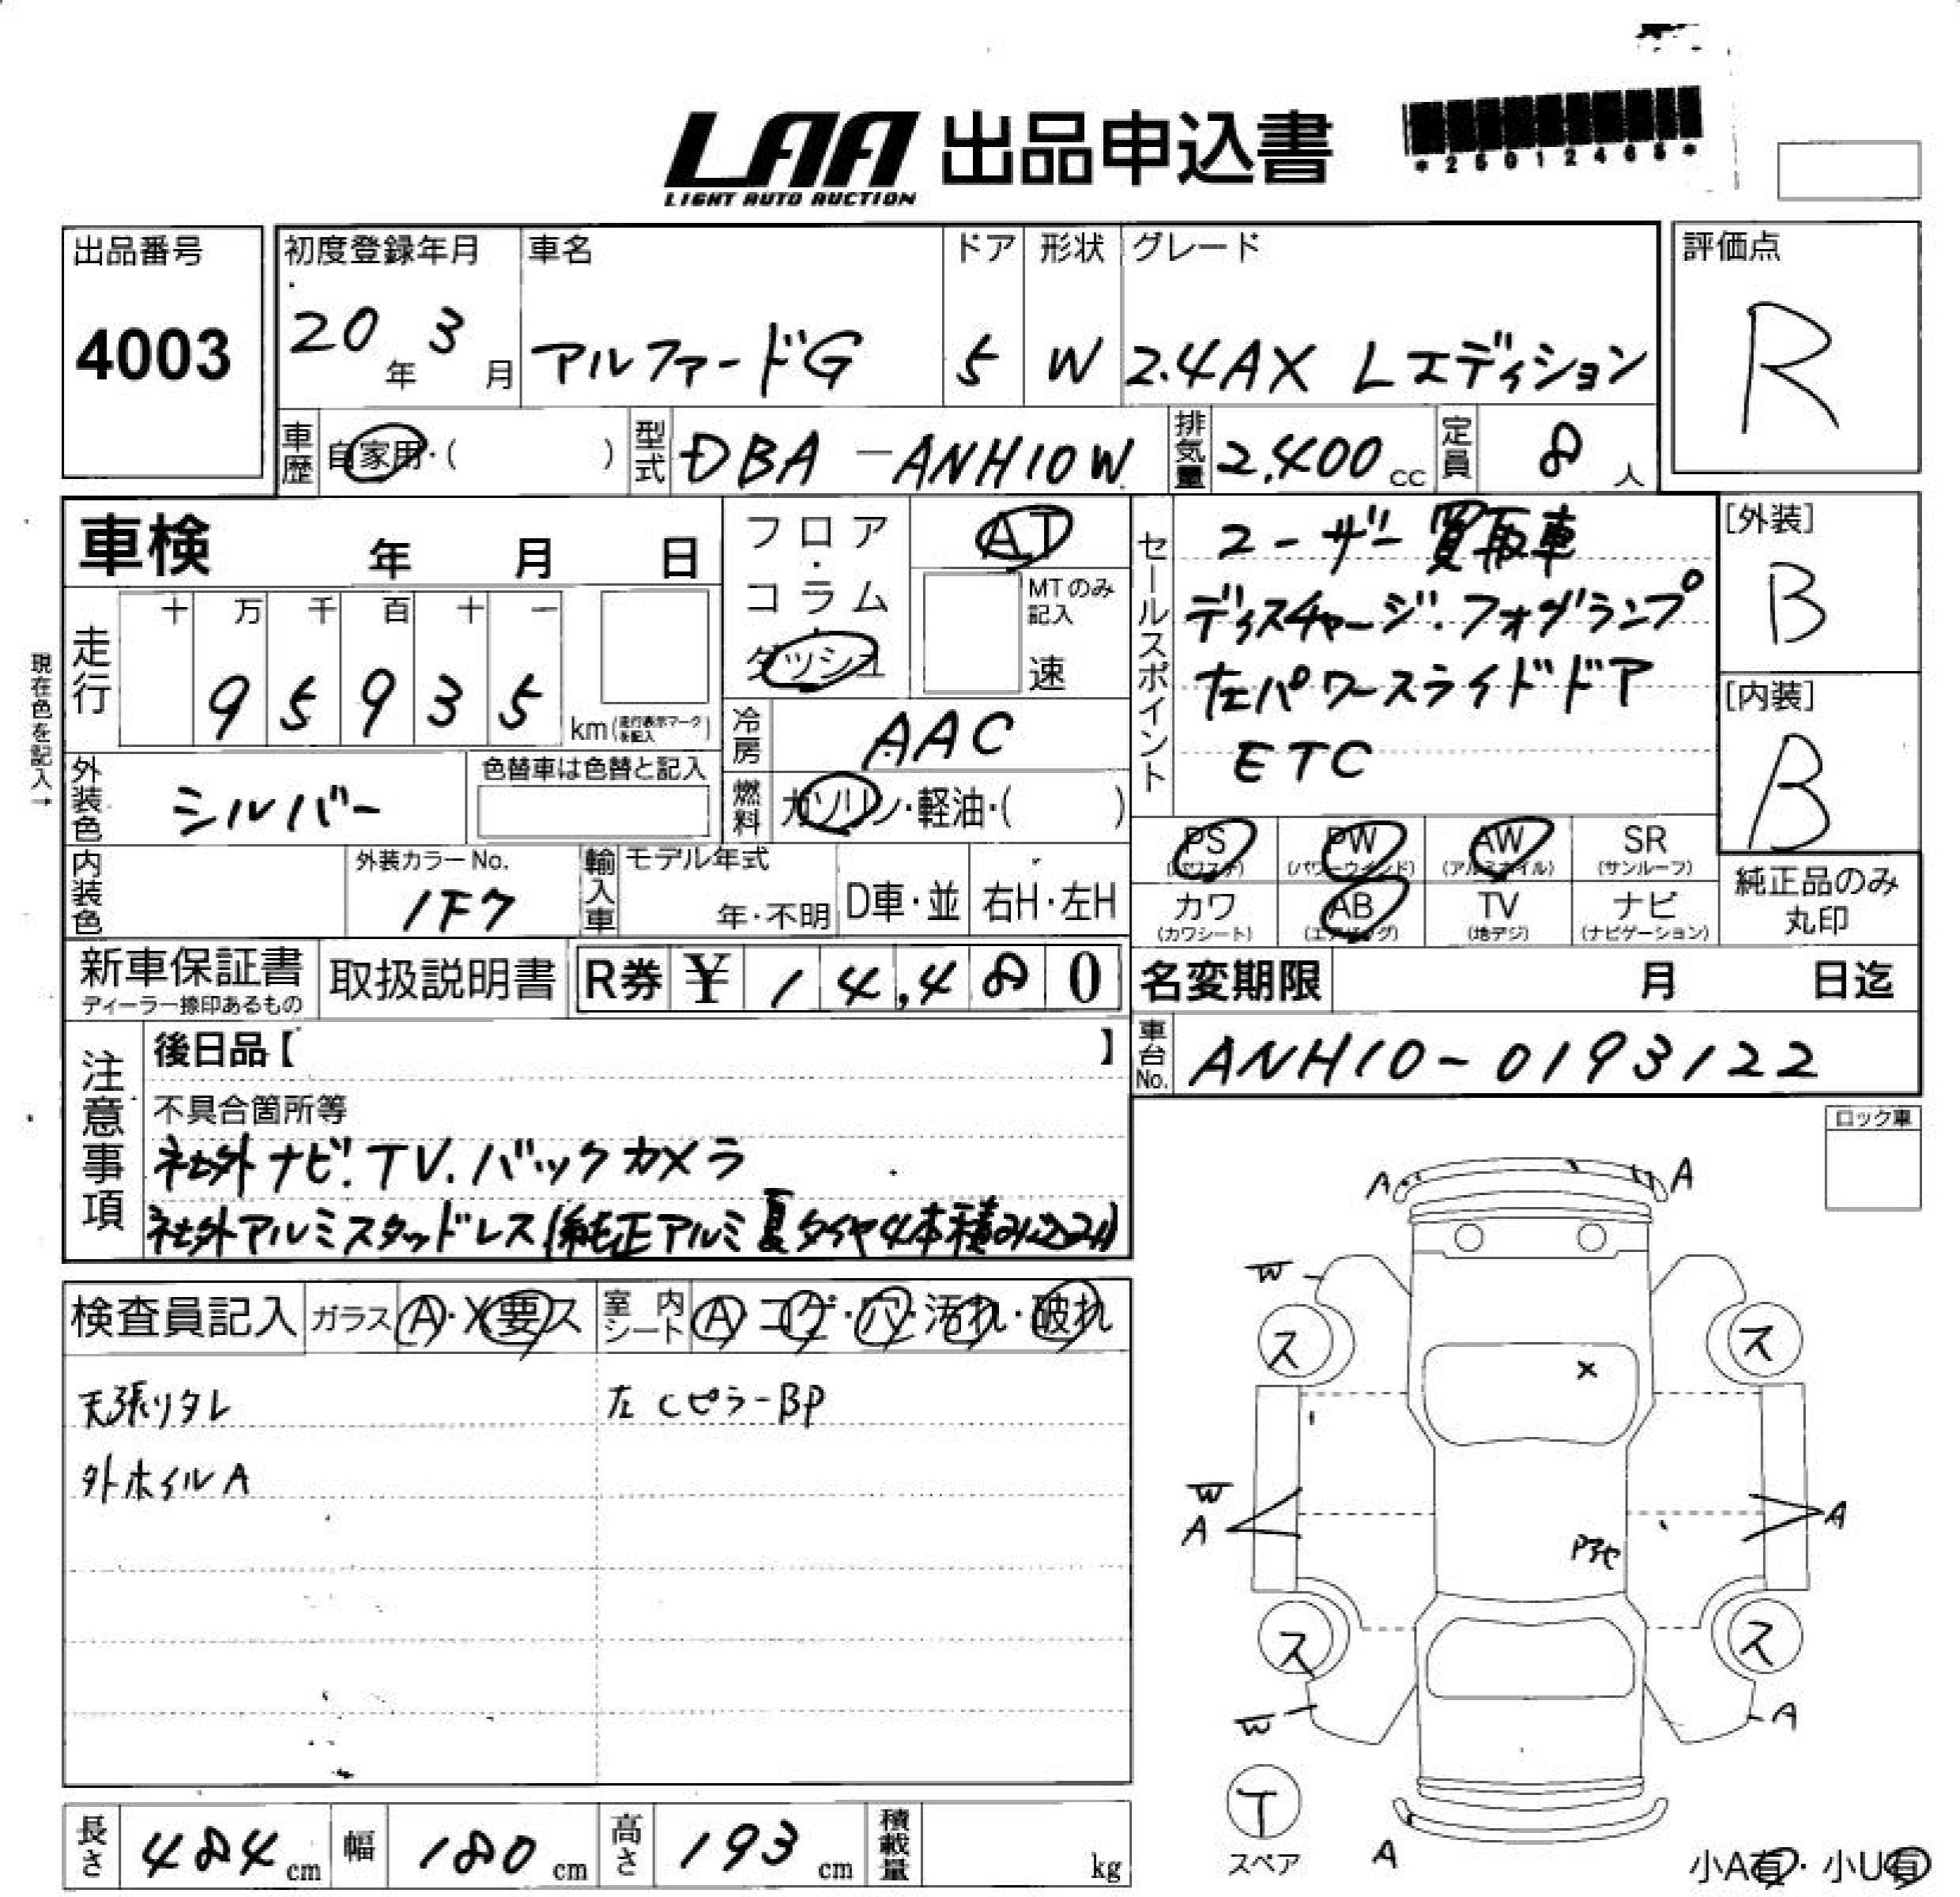 LAA 出品申込書
LIGHT AUTO AUCTION
*25012465*
出品番号
4003
初度登録年月
20年 3月
車名
アルファードG
ドア
5
形状
W
グレード
2.4AX Lエディション
評価点
R
車歴 自家用・( )
型式 DBA-ANH10W
排気量 2,400 cc
定員 8 人
車検 年 月 日
フロア・コラム・ダッシュ
AT
MTのみ記入
速
走行
十 万 千 百 十 一
9 5 9 3 5 km(走行表示マークを記入)
現在色を記入→
冷房 AAC
外装色 シルバー
色替車は色替と記入
燃料 ガソリン・軽油・( )
セールスポイント
ユーザー買取車
ディスチャージ.フォグランプ
左パワースライドドア
ETC
[外装]
B
[内装]
B
PS (パワステ)
PW (パワーウインド)
AW (アルミホイル)
SR (サンルーフ)
カワ (カワシート)
AB (エアバッグ)
TV (地デジ)
ナビ (ナビゲーション)
純正品のみ
丸印
内装色
外装カラーNo.
1F7
輸入車
モデル年式
年・不明
D車・並
右H・左H
新車保証書
ディーラー捺印あるもの
取扱説明書
R券 ¥ 14,480
名変期限 月 日迄
車台No. ANH10-0193122
注意事項
後日品【 】
不具合箇所等
社外ナビ.TV.バックカメラ
社外アルミスタッドレス(純正アルミ夏タイヤ4本積み込み)
ロック車
検査員記入 ガラス A・X要ス 室内シート A・コゲ・穴・汚れ・破れ
天張りタレ
左Cピラー BP
外ホイルA
A
A
W
ス
ス
X
W
A
A
ス
ス
W
A
T
スペア
A
小A有・小U有
長さ 484 cm
幅 180 cm
高さ 193 cm
積載量 kg